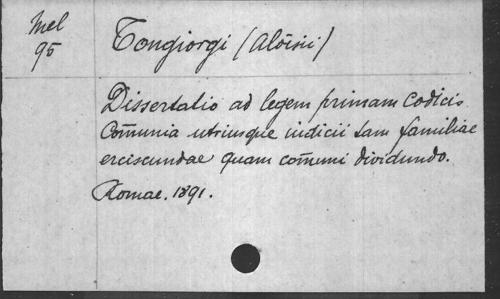 Mel
95
Tongiorgi (Aloisii)
Dissertatio ad legem primam Codicis
Com̅unia utriusque iudicii tam familiae
erciscundae quam com̅uni dividundo.
Romae. 1891.